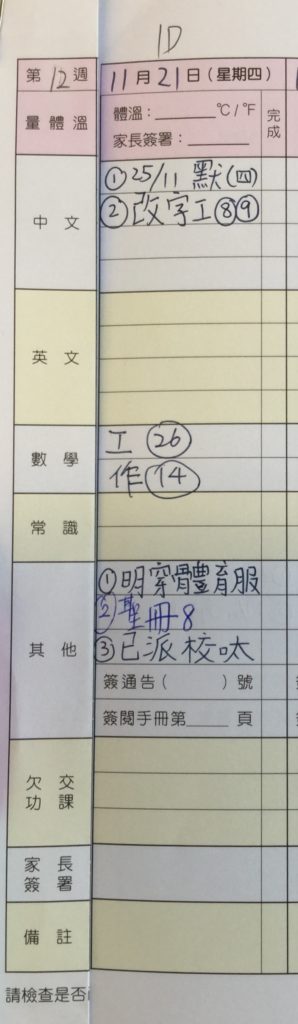 1D
第12週 11月21日(星期四)
量體溫 體溫：______°C/°F 完成
家長簽署：______
中文 ①25/11 默(四)
②改字工⑧⑨
英文
數學 工㉖
作⑭
常識
其他 ①明穿體育服
②聖冊8
③已派校呔
簽通告( )號
簽閱手冊第____頁
欠交功課
家長簽署
備註
請檢查是否